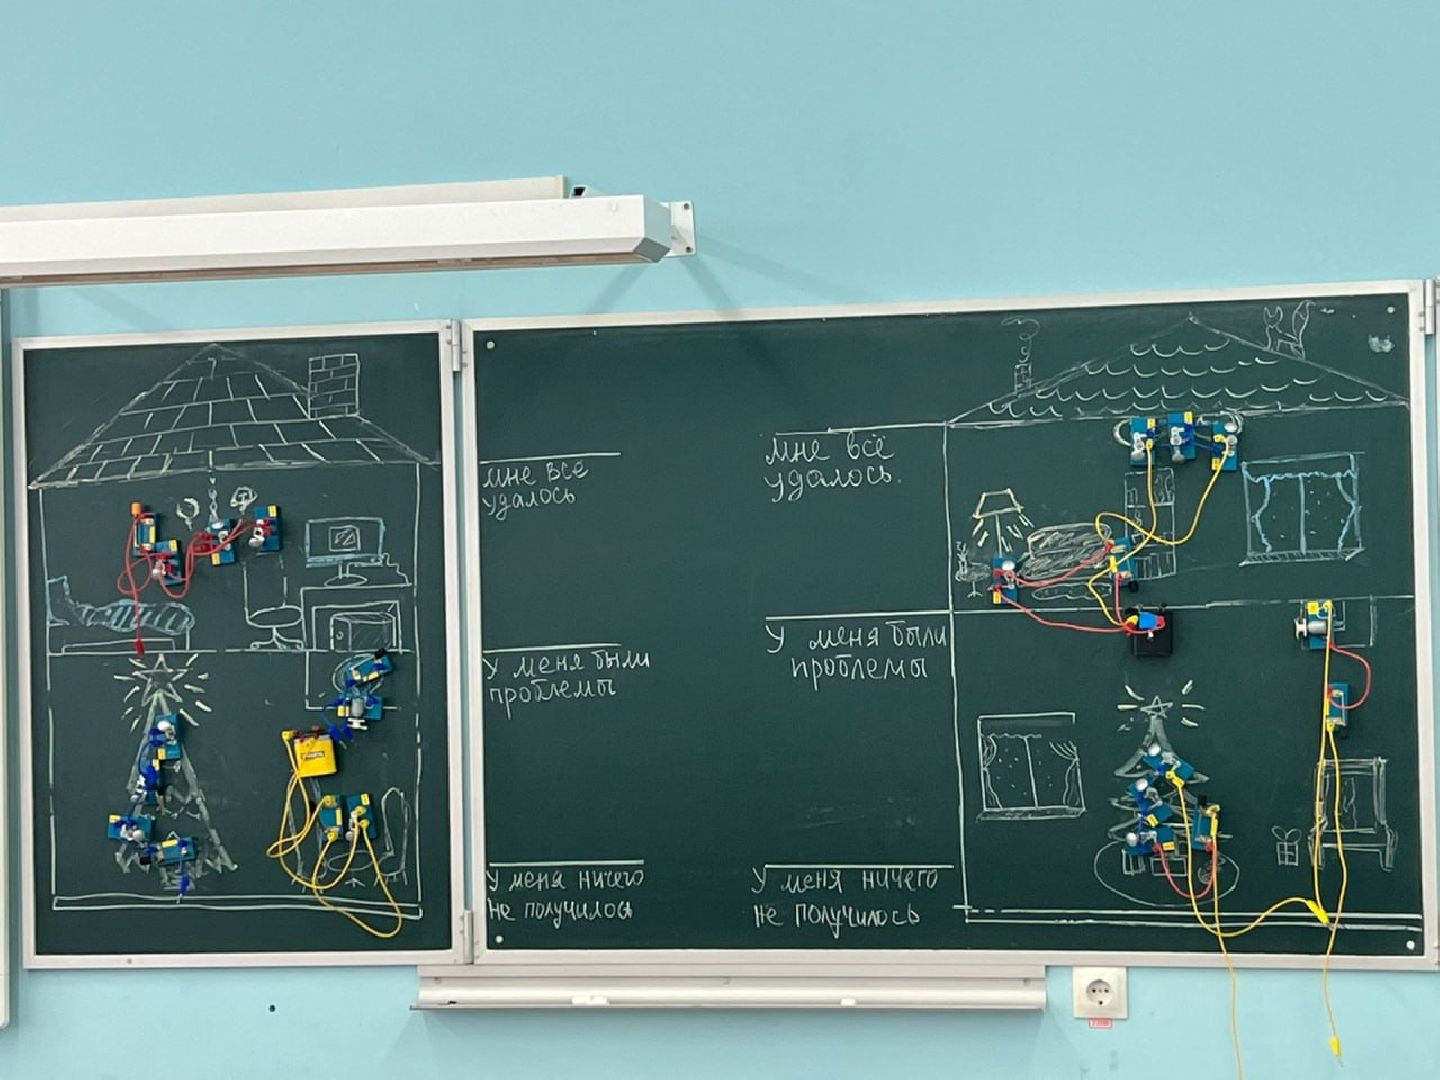 мне все
удалось
У меня были
проблемы
У меня ничего
не получилось
мне всё
удалось.
У меня были
проблемы
У меня ничего
не получилось